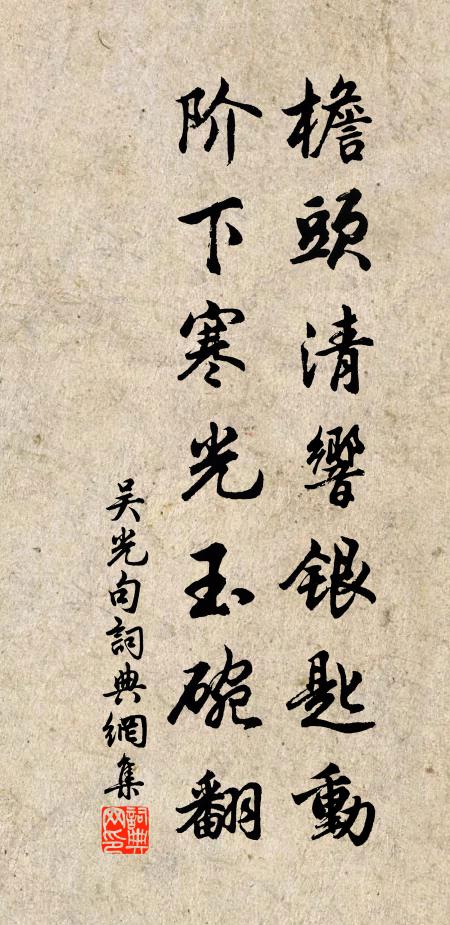 檐頭清響銀匙動
阶下寒光玉碗翻
吴光句詞典網集
詞典網印